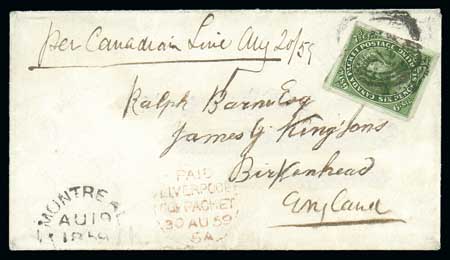 Per Canadian Line Aug 20/59
CANADA POSTAGE
SIX PENCE
Ralph Barnes Esq
James
Birkenhead
England
MONTREAL
AU 19
1859
PAID
LIVERPOOL
PACKET
30 AU 59
5A